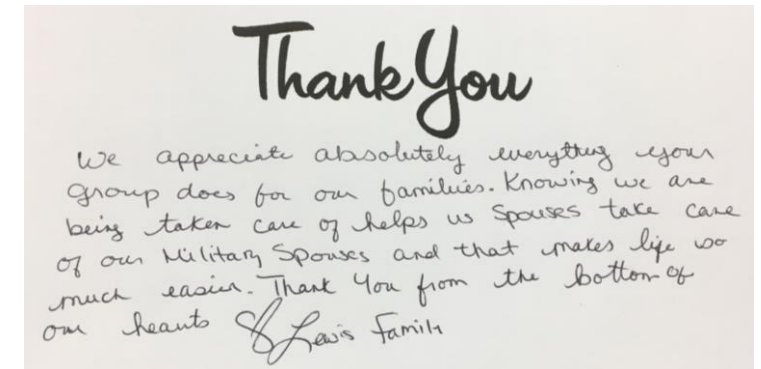 Thank You
We appreciate absolutely everything your
group does for our families. Knowing we are
being taken care of helps us spouses take care
of our Military Spouses and that makes life so
much easier. Thank You from the bottom of
our hearts
Lewis Family